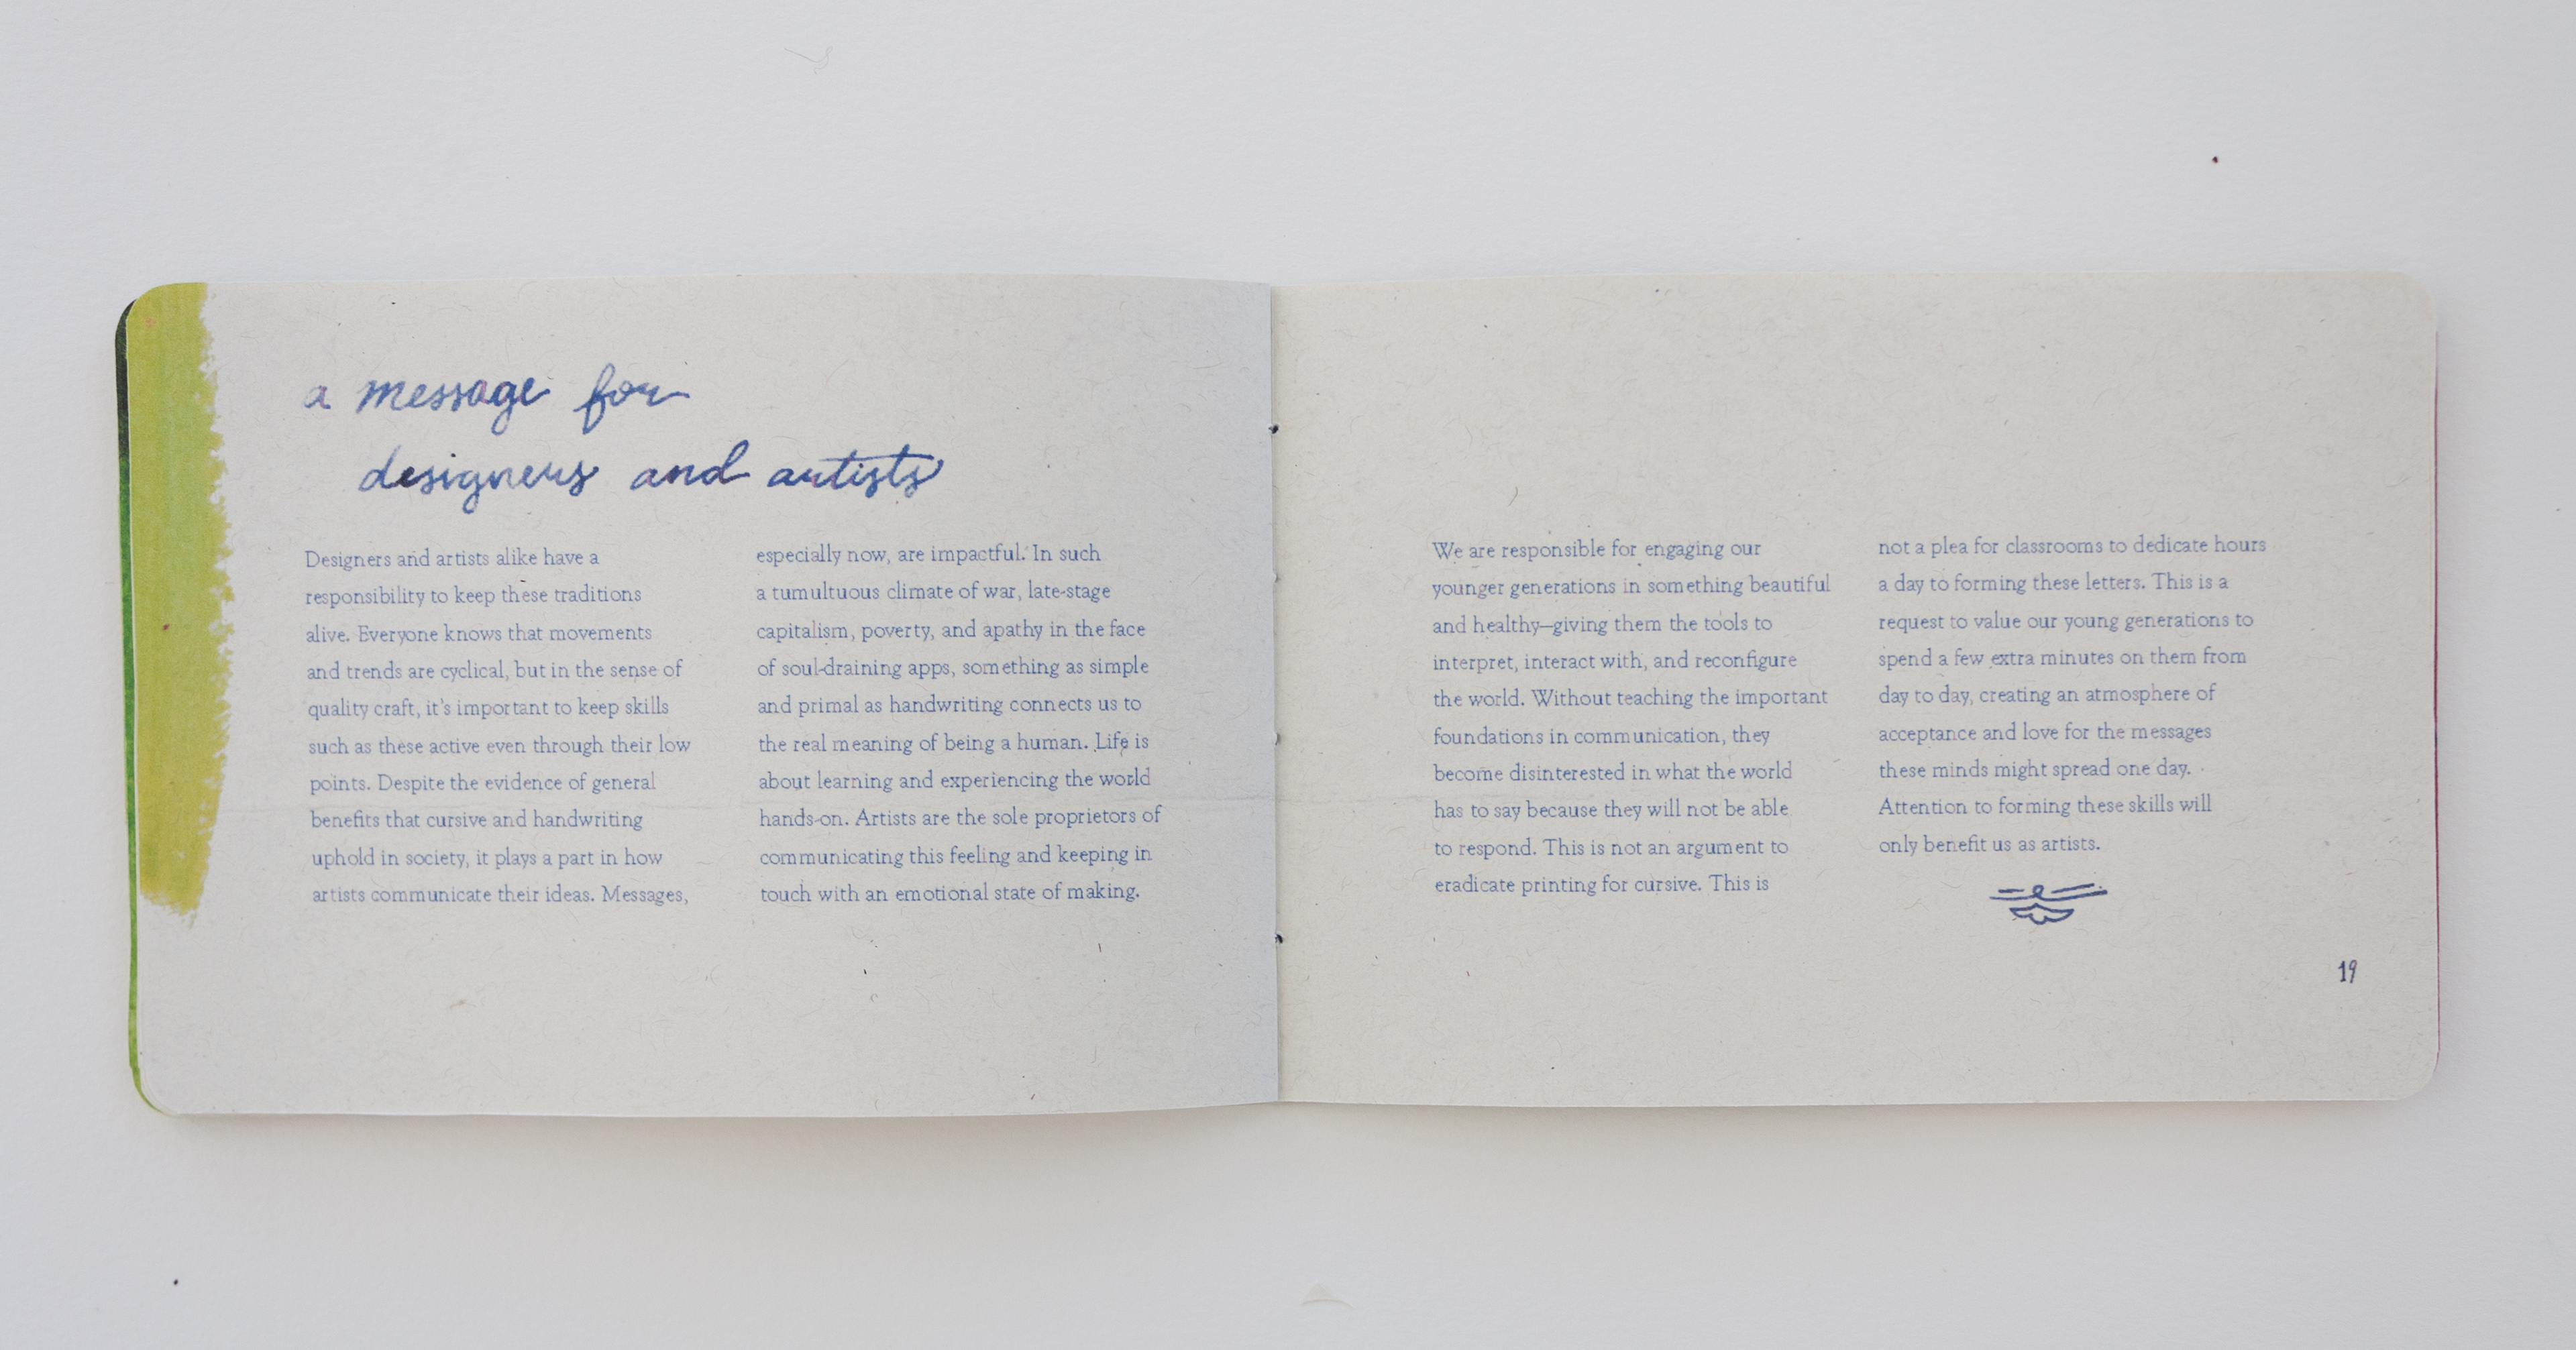 a message for
designers and artists
Designers and artists alike have a
responsibility to keep these traditions
alive. Everyone knows that movements
and trends are cyclical, but in the sense of
quality craft, it's important to keep skills
such as these active even through their low
points. Despite the evidence of general
benefits that cursive and handwriting
uphold in society, it plays a part in how
artists communicate their ideas. Messages,
especially now, are impactful. In such
a tumultuous climate of war, late-stage
capitalism, poverty, and apathy in the face
of soul-draining apps, something as simple
and primal as handwriting connects us to
the real meaning of being a human. Life is
about learning and experiencing the world
hands-on. Artists are the sole proprietors of
communicating this feeling and keeping in
touch with an emotional state of making.
We are responsible for engaging our
younger generations in something beautiful
and healthy—giving them the tools to
interpret, interact with, and reconfigure
the world. Without teaching the important
foundations in communication, they
become disinterested in what the world
has to say because they will not be able
to respond. This is not an argument to
eradicate printing for cursive. This is
not a plea for classrooms to dedicate hours
a day to forming these letters. This is a
request to value our young generations to
spend a few extra minutes on them from
day to day, creating an atmosphere of
acceptance and love for the messages
these minds might spread one day.
Attention to forming these skills will
only benefit us as artists.
19